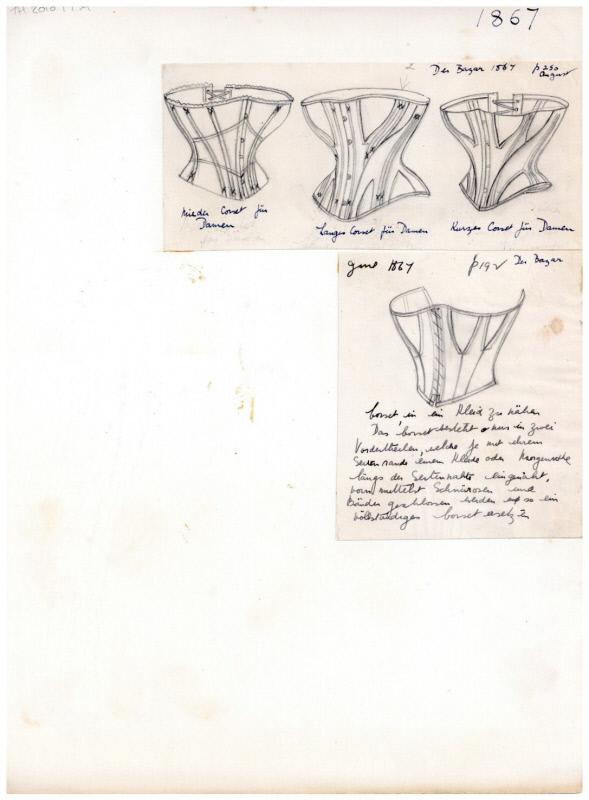 1867
Der Bazar 1867 p 250
August
Mieder Corset für
Damen
Langes Corset für Damen
Kurzes Corset für Damen
June 1867 p 192 Der Bazar
Corset in ein Kleid zu nähen
Das Corset besteht nur in zwei
Vordertheilen, welche je mit ihrem
Seitenrande einem Kleide oder Morgenrocke
längs der Seitennahte eingenäht,
vorn mittelst Schnürösen und
Bänder geschlossen werden u so ein
vollständiges Corset ersetzen